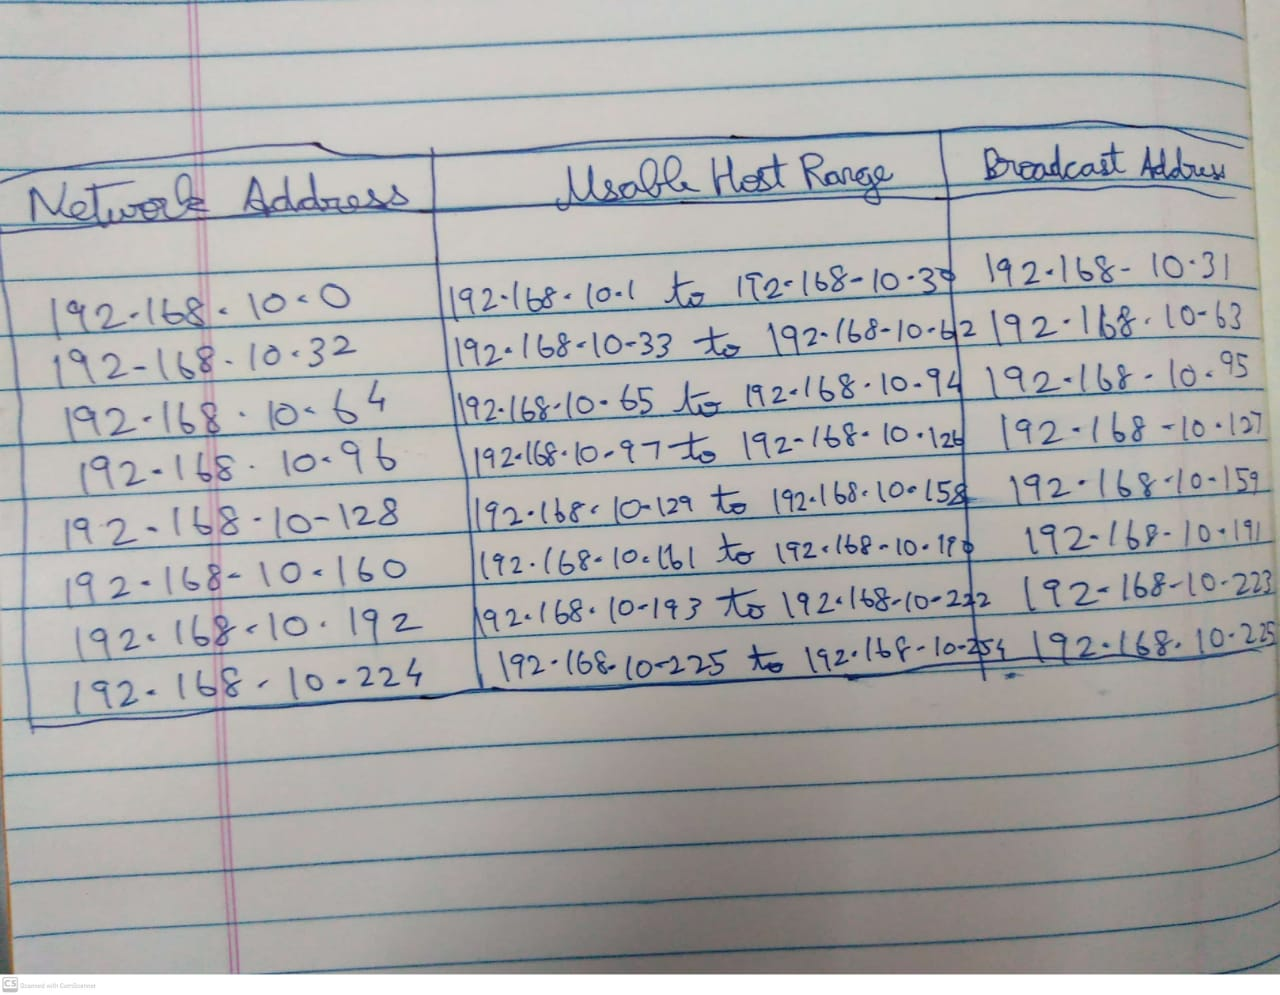 Network Address Usable Host Range Broadcast Address
192.168.10.0 192.168.10.1 to 192.168-10.30 192.168-10.31
192-168.10.32 192.168-10-33 to 192.168-10-62 192.168.10-63
192.168.10.64 192.168-10.65 to 192.168.10.94 192.168-10.95
192.168.10.96 192.168.10-97 to 192-168.10.126 192.168-10.127
192-168-10-128 192.168.10-129 to 192.168.10.158 192.168-10-159
192.168-10.160 192.168-10.161 to 192.168-10.190 192.168-10.191
192.168-10.192 192.168.10-193 to 192.168-10-222 192-168-10-223
192.168-10-224 192.168.10-225 to 192.168-10-254 192.168.10-225
CS Scanned with CamScanner